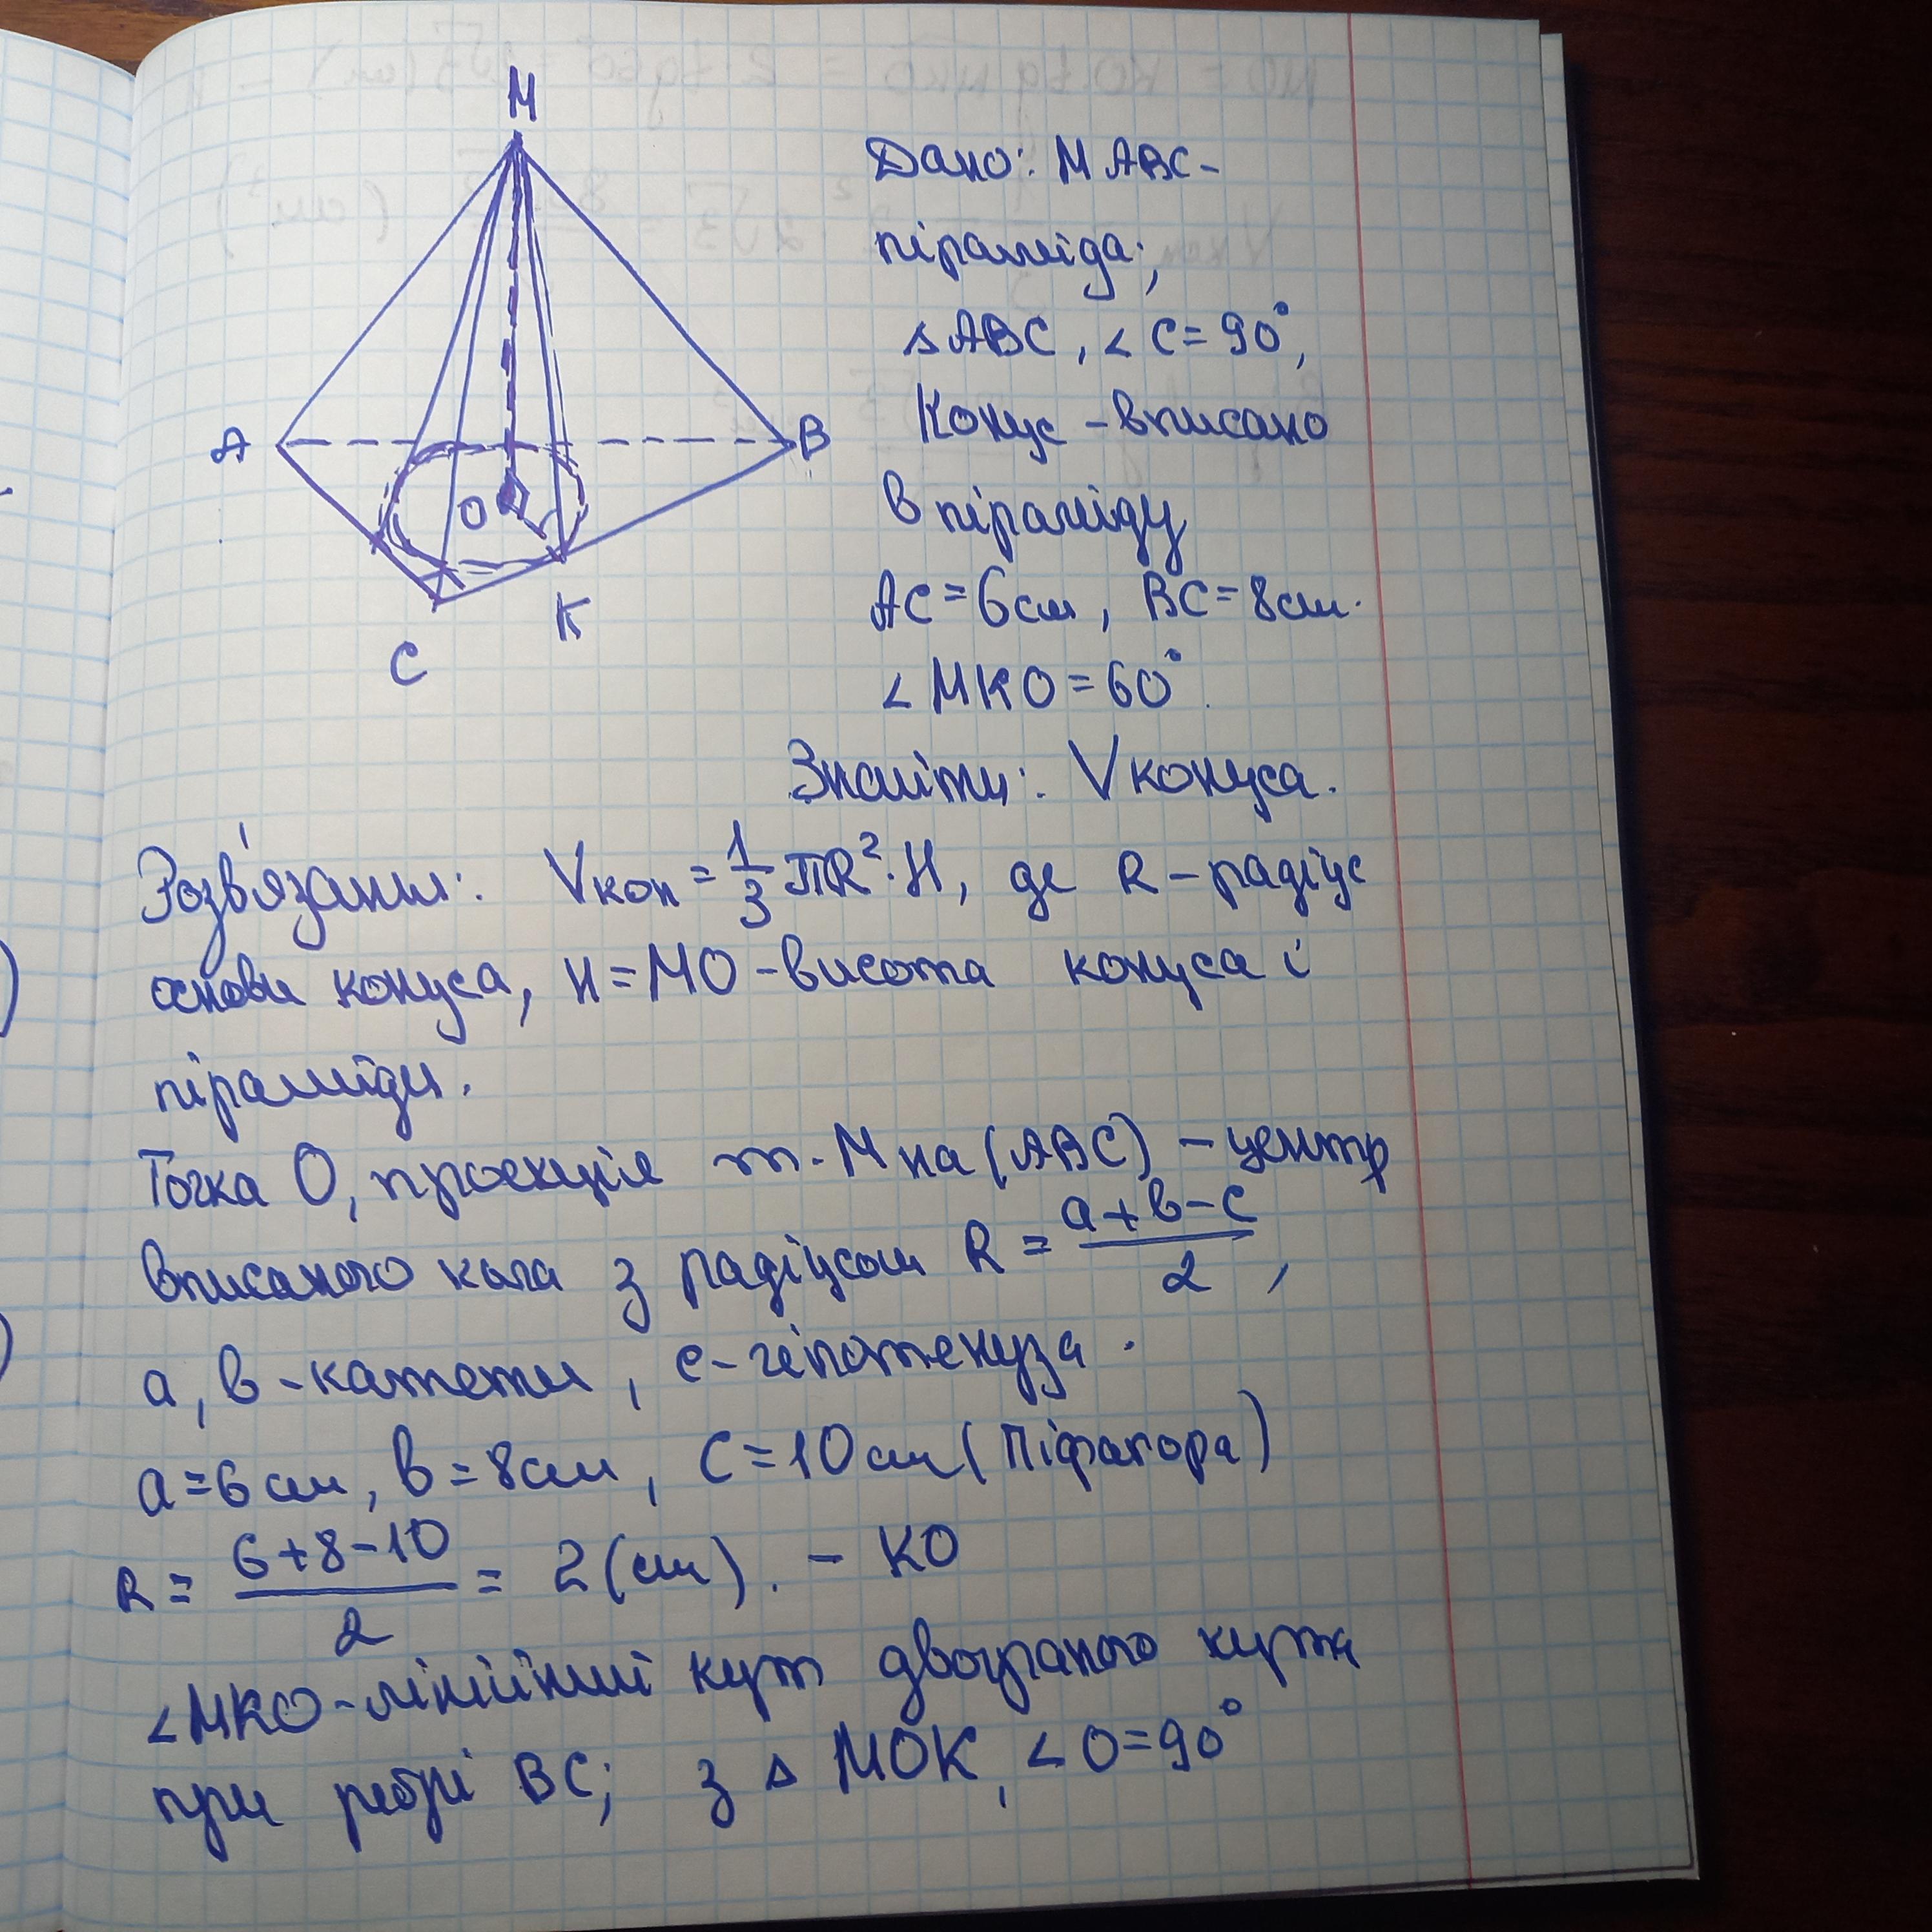 M
A
B
O
K
C
Дано: MABC-
піраміда;
△ABC, ∠C=90°,
Конус - вписано
в піраміду
AC=6см, BC=8см.
∠MKO=60°.
Знайти: Vконуса.
Розв'язання: Vкон = 1/3 πR²·H, де R-радіус
основи конуса, H=MO-висота конуса і
піраміди.
Точка O, проекція т. M на (ABC) - центр
вписаного кола з радіусом R = (a+b-c)/2,
a, b-катети, c-гіпотенуза.
a=6см, b=8см, c=10см (Піфагора)
R = (6+8-10)/2 = 2(см). - KO
∠MKO-лінійний кут двогранного кута
при ребрі BC; з △ MOK, ∠O=90°